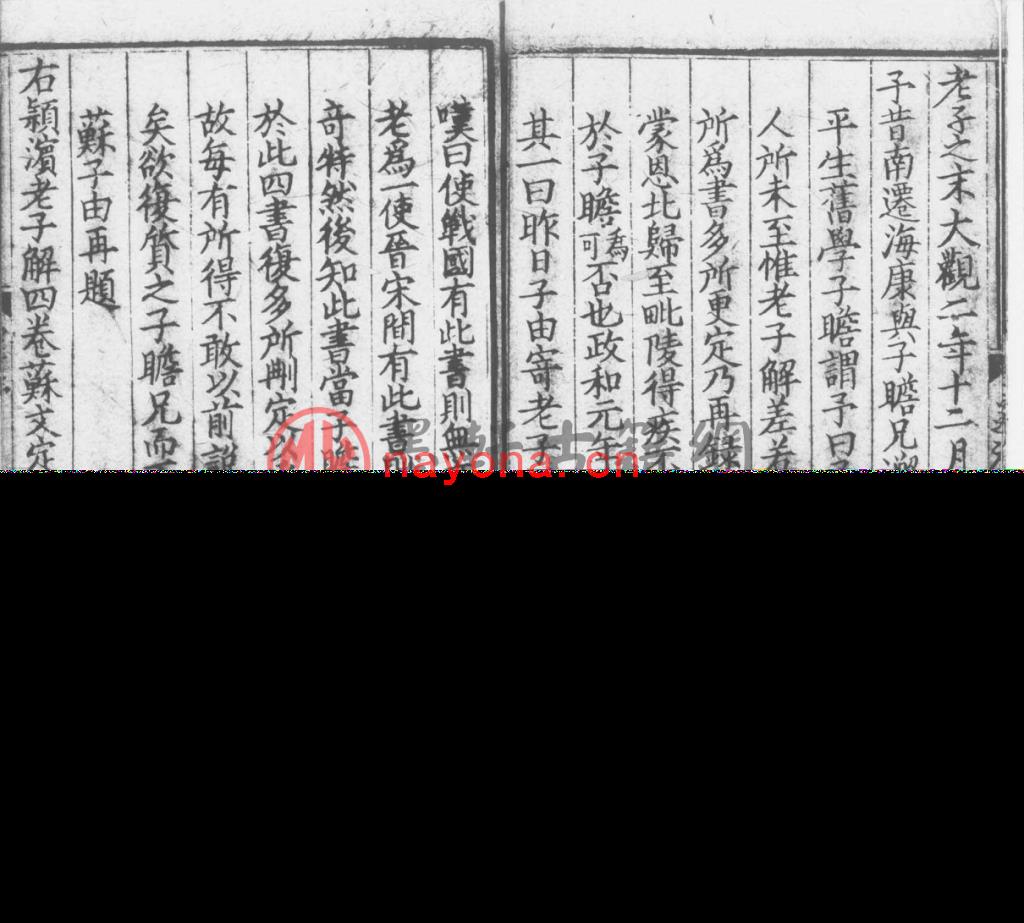 老子之末大觀二年十二月
予昔南遷海康與子瞻兄邂
平生舊學子瞻謂予曰
人所未至惟老子解差若
所為書多所更定乃再録
蒙恩北歸至毗陵得疾
於子瞻為可否也政和元年
其一曰昨日子由寄老子
嘆曰使戰國有此書則無
老為一使晉宋間有此書則
奇特然後知此書當子瞻
於此四書復多所刪定
故每有所得不敢以前說
矣欲復質之子瞻兄而
蘇子由再題
右潁濵老子解四卷蘇文定
nayona.cn